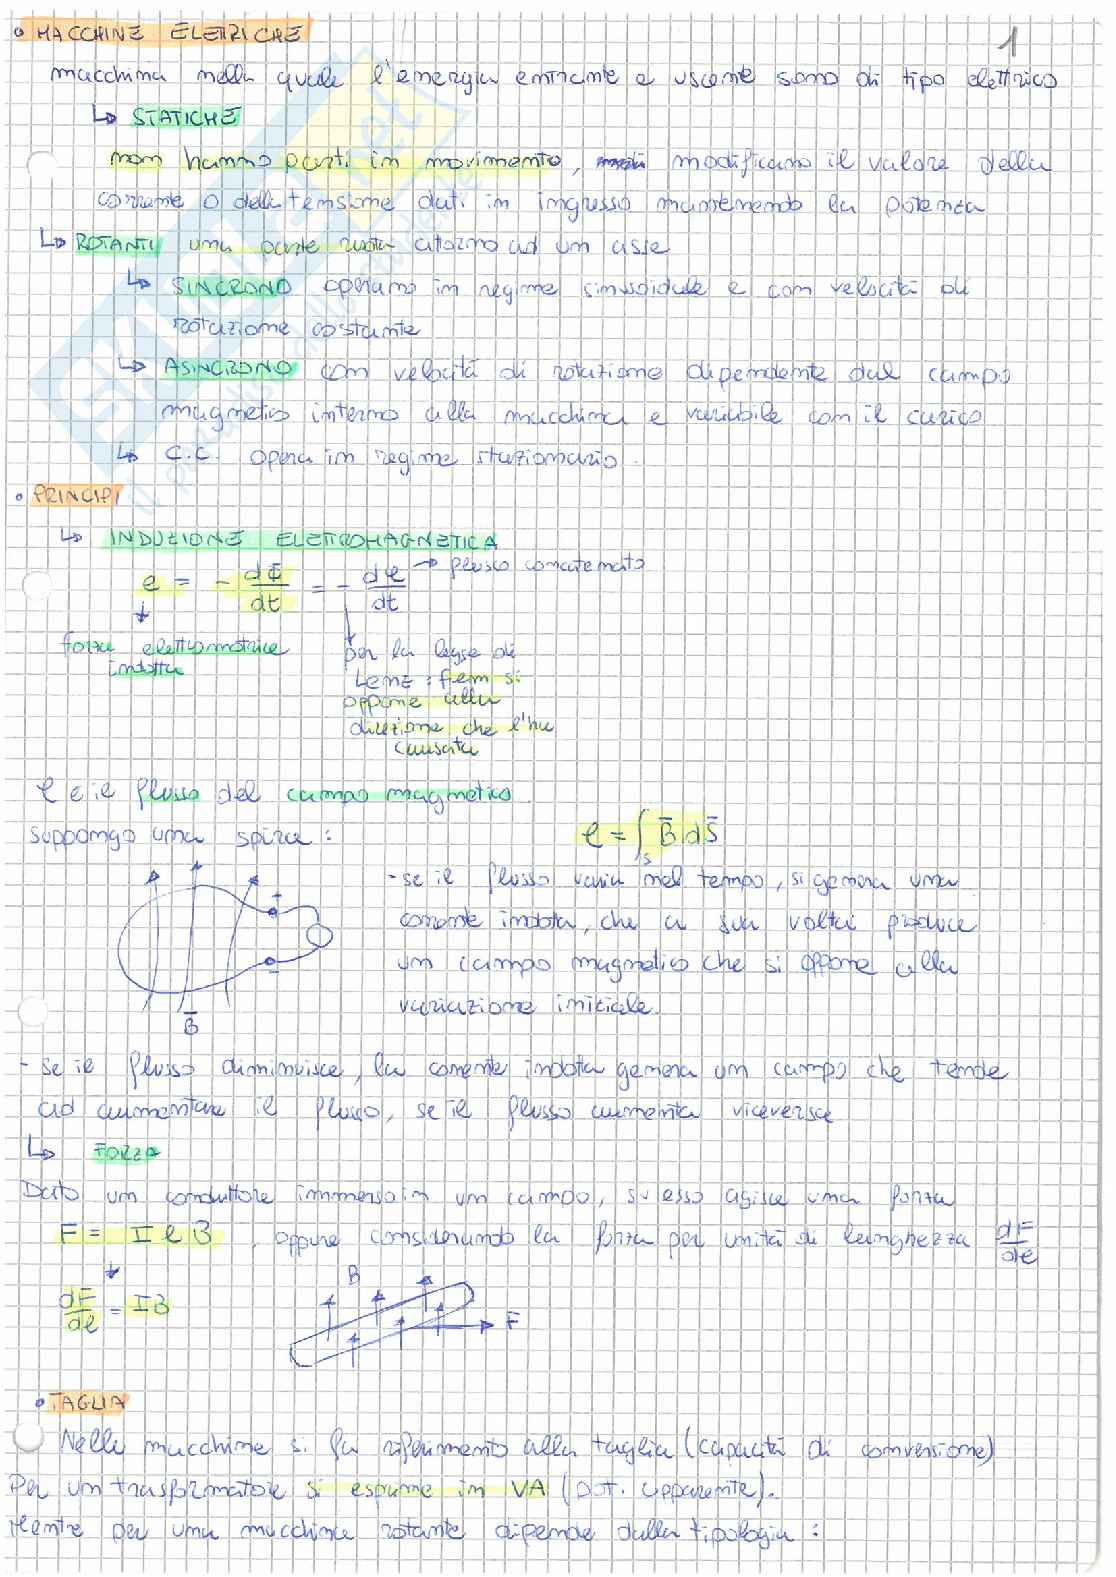 • MACCHINE ELETTRICHE
1
macchina nella quale l'energia entrante e uscente sono di tipo elettrico
↳ STATICHE
non hanno parti in movimento, modificano il valore della
corrente o della tensione dati in ingresso mantenendo la potenza
↳ ROTANTI una parte ruota attorno ad un asse
↳ SINCRONO operano in regime sinusoidale e con velocità di
rotazione costante
↳ ASINCRONO con velocità di rotazione dipendente dal campo
magnetico interno alla macchina e variabile con il carico
↳ C.C. opera in regime stazionario.
• PRINCIPI
↳ INDUZIONE ELETTROMAGNETICA
e = - dΦ/dt = - dφ/dt → flusso concatenato
forza elettromotrice indotta
per la legge di
Lenz: fem si
oppone alla
direzione che l'ha
causata
φ è il flusso del campo magnetico
suppongo una spira:
φ = ∫s B̄ dS̄
- se il flusso varia nel tempo, si genera una
corrente indotta, che a sua volta produce
un campo magnetico che si oppone alla
variazione iniziale.
+
-
B̄
- se il flusso diminuisce, la corrente indotta genera un campo che tende
ad aumentare il flusso, se il flusso aumenta viceversa
↳ FORZA
Dato un conduttore immerso in un campo, su esso agisce una forza
F = I l B, oppure considerando la forza per unità di lunghezza dF/dl
dF/dl = IB
B
F
• TAGLIA
Nelle macchine si fa riferimento alla taglia (capacità di conversione)
Per un trasformatore si esprime in VA (pot. apparente).
Mentre per una macchina rotante dipende dalla tipologia: